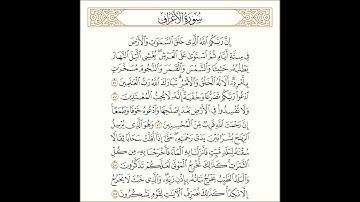 سُورَةُ الأَعْرَافِ
إِنَّ رَبَّكُمُ اللَّهُ الَّذِي خَلَقَ السَّمَاوَاتِ وَالْأَرْضَ
فِي سِتَّةِ أَيَّامٍ ثُمَّ اسْتَوَىٰ عَلَى الْعَرْشِ يُغْشِي اللَّيْلَ النَّهَارَ
يَطْلُبُهُ حَثِيثًا وَالشَّمْسَ وَالْقَمَرَ وَالنُّجُومَ مُسَخَّرَاتٍ
بِأَمْرِهِ أَلَا لَهُ الْخَلْقُ وَالْأَمْرُ تَبَارَكَ اللَّهُ رَبُّ الْعَالَمِينَ
ادْعُوا رَبَّكُمْ تَضَرُّعًا وَخُفْيَةً إِنَّهُ لَا يُحِبُّ الْمُعْتَدِينَ
وَلَا تُفْسِدُوا فِي الْأَرْضِ بَعْدَ إِصْلَاحِهَا وَادْعُوهُ خَوْفًا وَطَمَعًا
إِنَّ رَحْمَتَ اللَّهِ قَرِيبٌ مِّنَ الْمُحْسِنِينَ وَهُوَ الَّذِي يُرْسِلُ
الرِّيَاحَ بُشْرًا بَيْنَ يَدَيْ رَحْمَتِهِ حَتَّىٰ إِذَا أَقَلَّتْ سَحَابًا ثِقَالًا
سُقْنَاهُ لِبَلَدٍ مَّيِّتٍ فَأَنزَلْنَا بِهِ الْمَاءَ فَأَخْرَجْنَا بِهِ مِن كُلِّ
الثَّمَرَاتِ كَذَٰلِكَ نُخْرِجُ الْمَوْتَىٰ لَعَلَّكُمْ تَذَكَّرُونَ
وَالْبَلَدُ الطَّيِّبُ يَخْرُجُ نَبَاتُهُ بِإِذْنِ رَبِّهِ وَالَّذِي خَبُثَ لَا يَخْرُجُ
إِلَّا نَكِدًا كَذَٰلِكَ نُصَرِّفُ الْآيَاتِ لِقَوْمٍ يَشْكُرُونَ